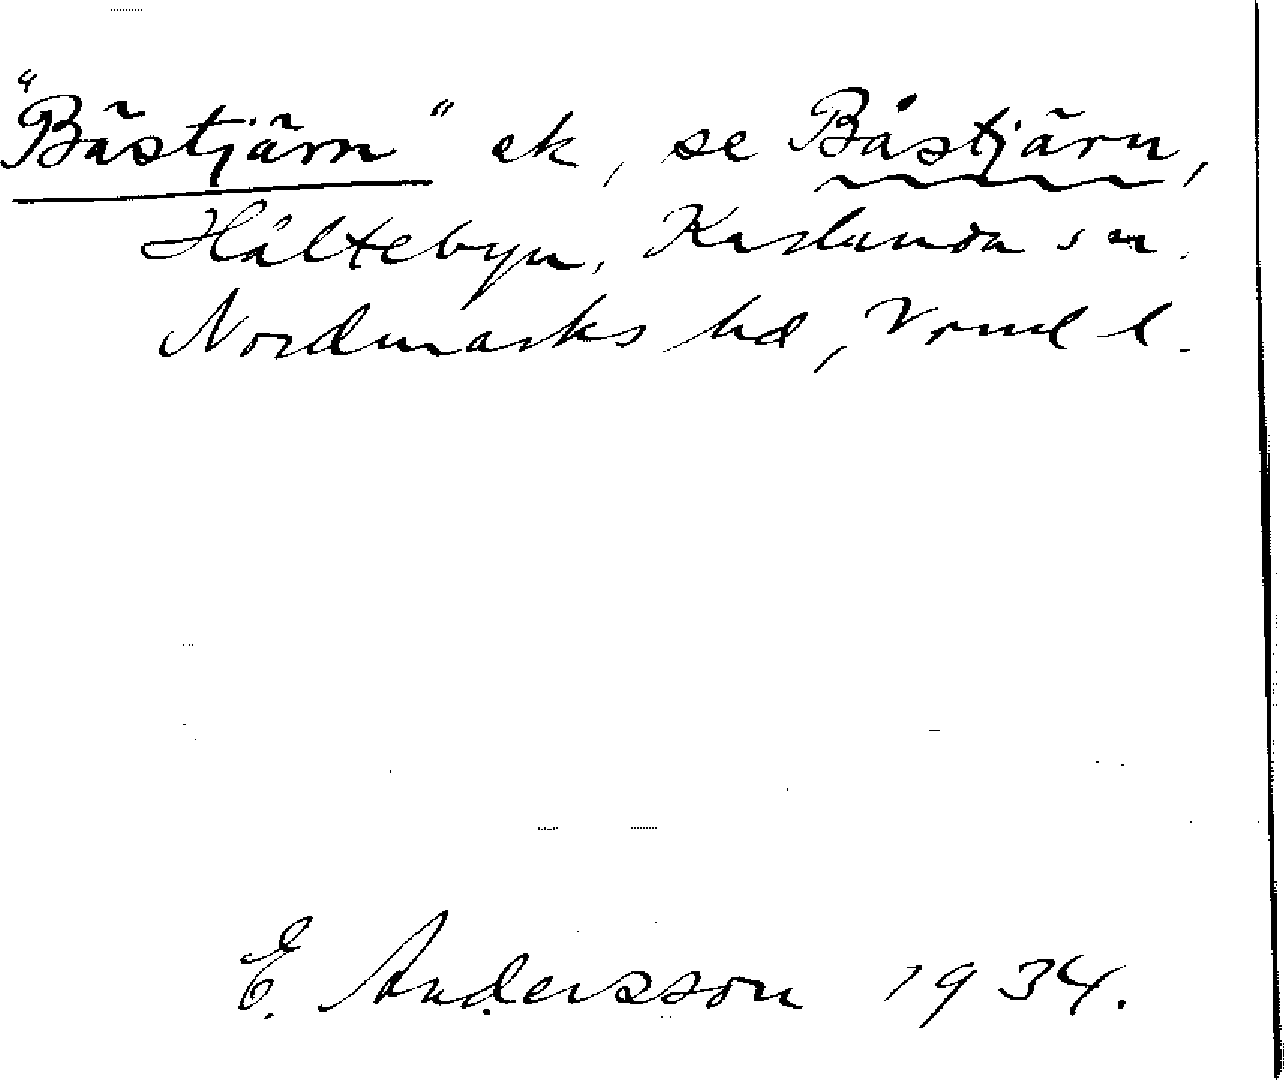 "Bästjärn" ek, se Båstjärn,
Håltebyn, Karlanda sn.
Nordmarks hd, Vrml l.
E. Andersson 1934.